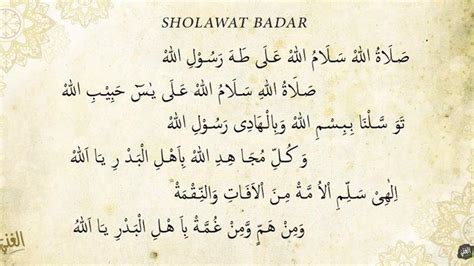 SHOLAWAT BADAR
صَلَاةُ اللهْ سَلَامُ اللهْ عَلَى طٰهَ رَسُوْلِ اللهْ
صَلَاةُ اللهِ سَلَامُ اللهْ عَلَى يٰسٓ حَبِيْبِ اللهْ
تَوَ سَّلْنَا بِبِسْمِ اللهْ وَبِالْهَادِى رَسُوْلِ اللهْ
وَ كُلِّ مُجَا هِدِ اللهْ بِاَهْلِ الْبَدْ رِ يَا اَللهْ
اِلٰهِىْ سَلِّمِ اْلاُ مَّةْ مِنَ اْلاَفَاتِ وَالنِّقْمَةْ
وَمِنْ هَمٍّ وَّمِنْ غُمَّةٍ بِاَ هْلِ الْبَدْرِ يَا اَللهْ
الغني